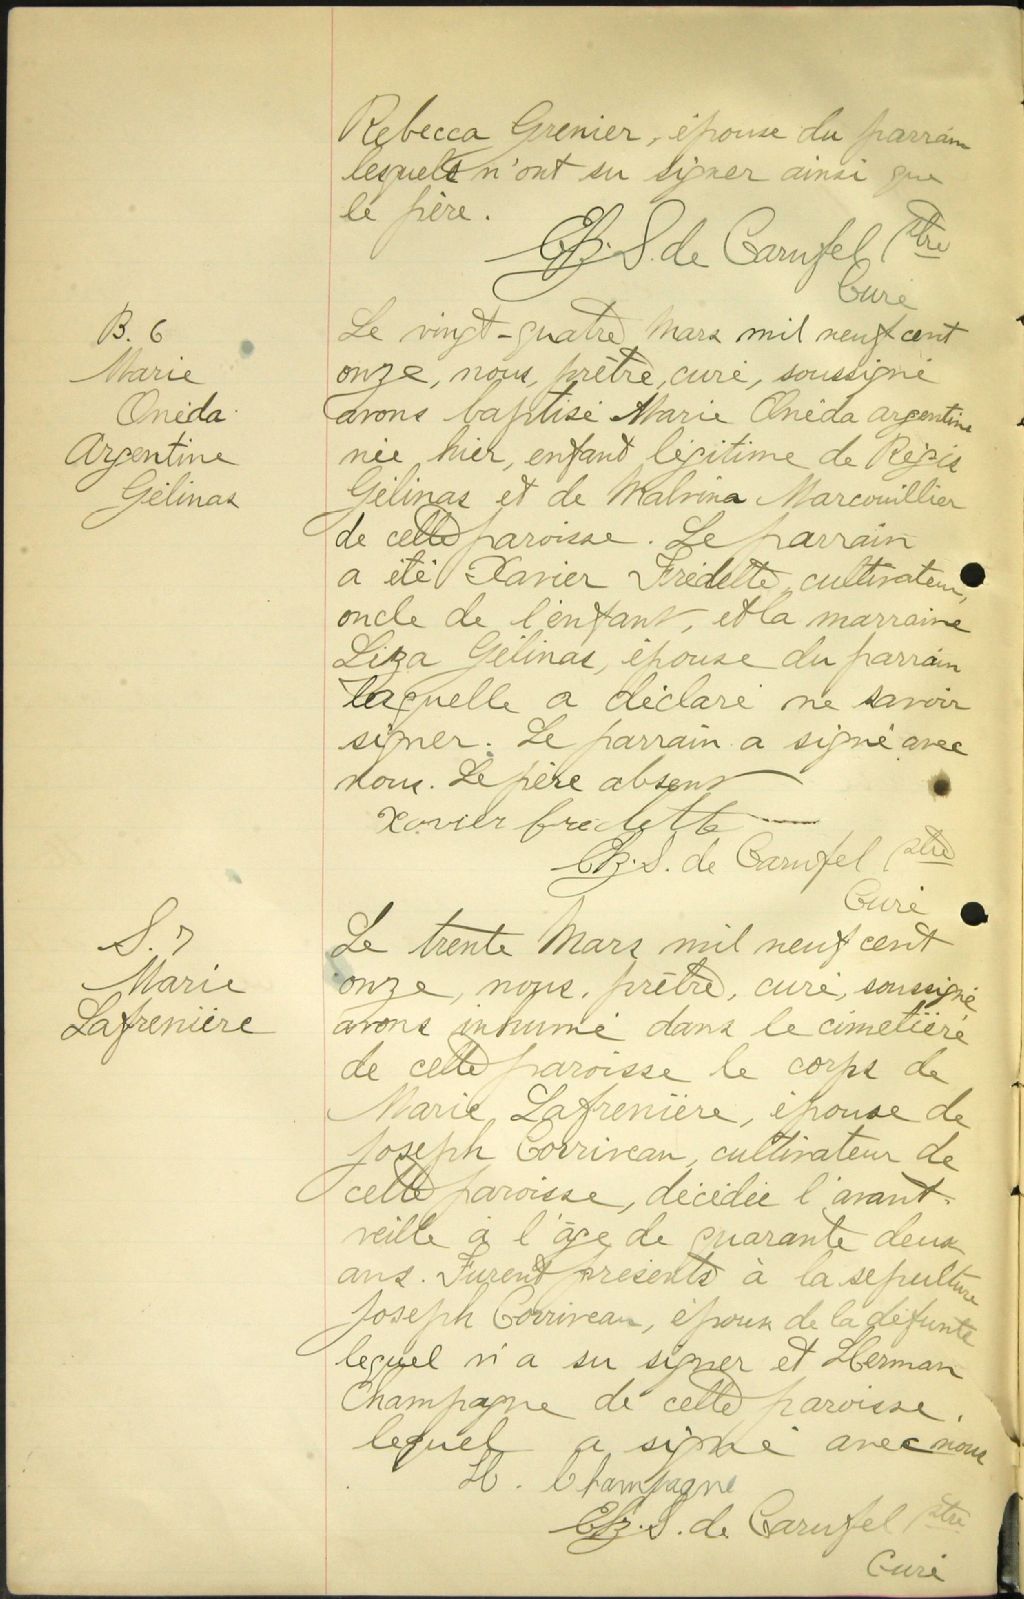 Rebecca Grenier, épouse du parrain
lesquels n'ont su signer ainsi que
le père.
Chs. S. de Carufel Ptre
Curé
B. 6
Marie
Onéda
Argentine
Gélinas
Le vingt-quatre Mars mil neuf cent
onze, nous, prêtre, curé, soussigné
avons baptisé Marie Onéda argentine
née hier, enfant légitime de Régis
Gélinas et de Malvina Marcouillier
de cette paroisse. Le parrain
a été Xavier Frédette, cultivateur,
oncle de l'enfant, et la marraine
Liza Gélinas, épouse du parrain
laquelle a déclaré ne savoir
signer. Le parrain a signé avec
nous. Le père absent
Xavier fredette
Chs. S. de Carufel Ptre
Curé
S. 7
Marie
Lafrenière
Le trente Mars mil neuf cent
onze, nous, prêtre, curé, soussigné
avons inhumé dans le cimetière
de cette paroisse le corps de
Marie Lafrenière, épouse de
Joseph Corriveau, cultivateur de
cette paroisse, décédée l'avant-
veille à l'âge de quarante deux
ans. Furent présents à la sépulture
Joseph Corriveau, époux de la défunte
lequel n'a su signer et Herman
Champagne de cette paroisse,
lequel a signé avec nous
H. Champagne
Chs. S. de Carufel Ptre
Curé